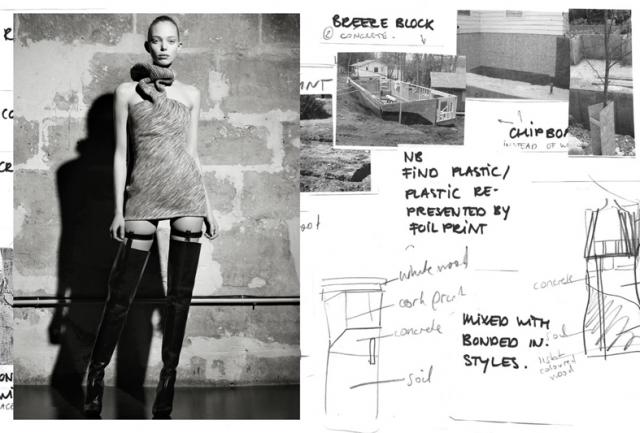 BREEZE BLOCK
② CONCRETE.
CHIPBOA
INSTEAD OF W
NB
FIND PLASTIC/
PLASTIC RE-
PRESENTED BY
FOIL PRINT
white wood
cork print
concrete
soil
MIXED WITH
BONDED IN.
STYLES.
concrete
light
coloured
wood